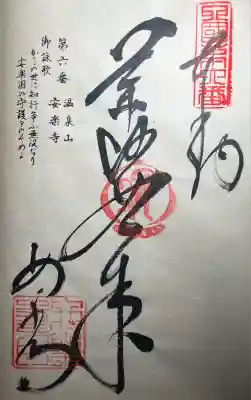 四國第六番
奉納
薬師如来
第六番 温泉山
安楽寺
御詠歌
かりの世に知行争ふ無役なり
安楽国の守護をのぞめよ